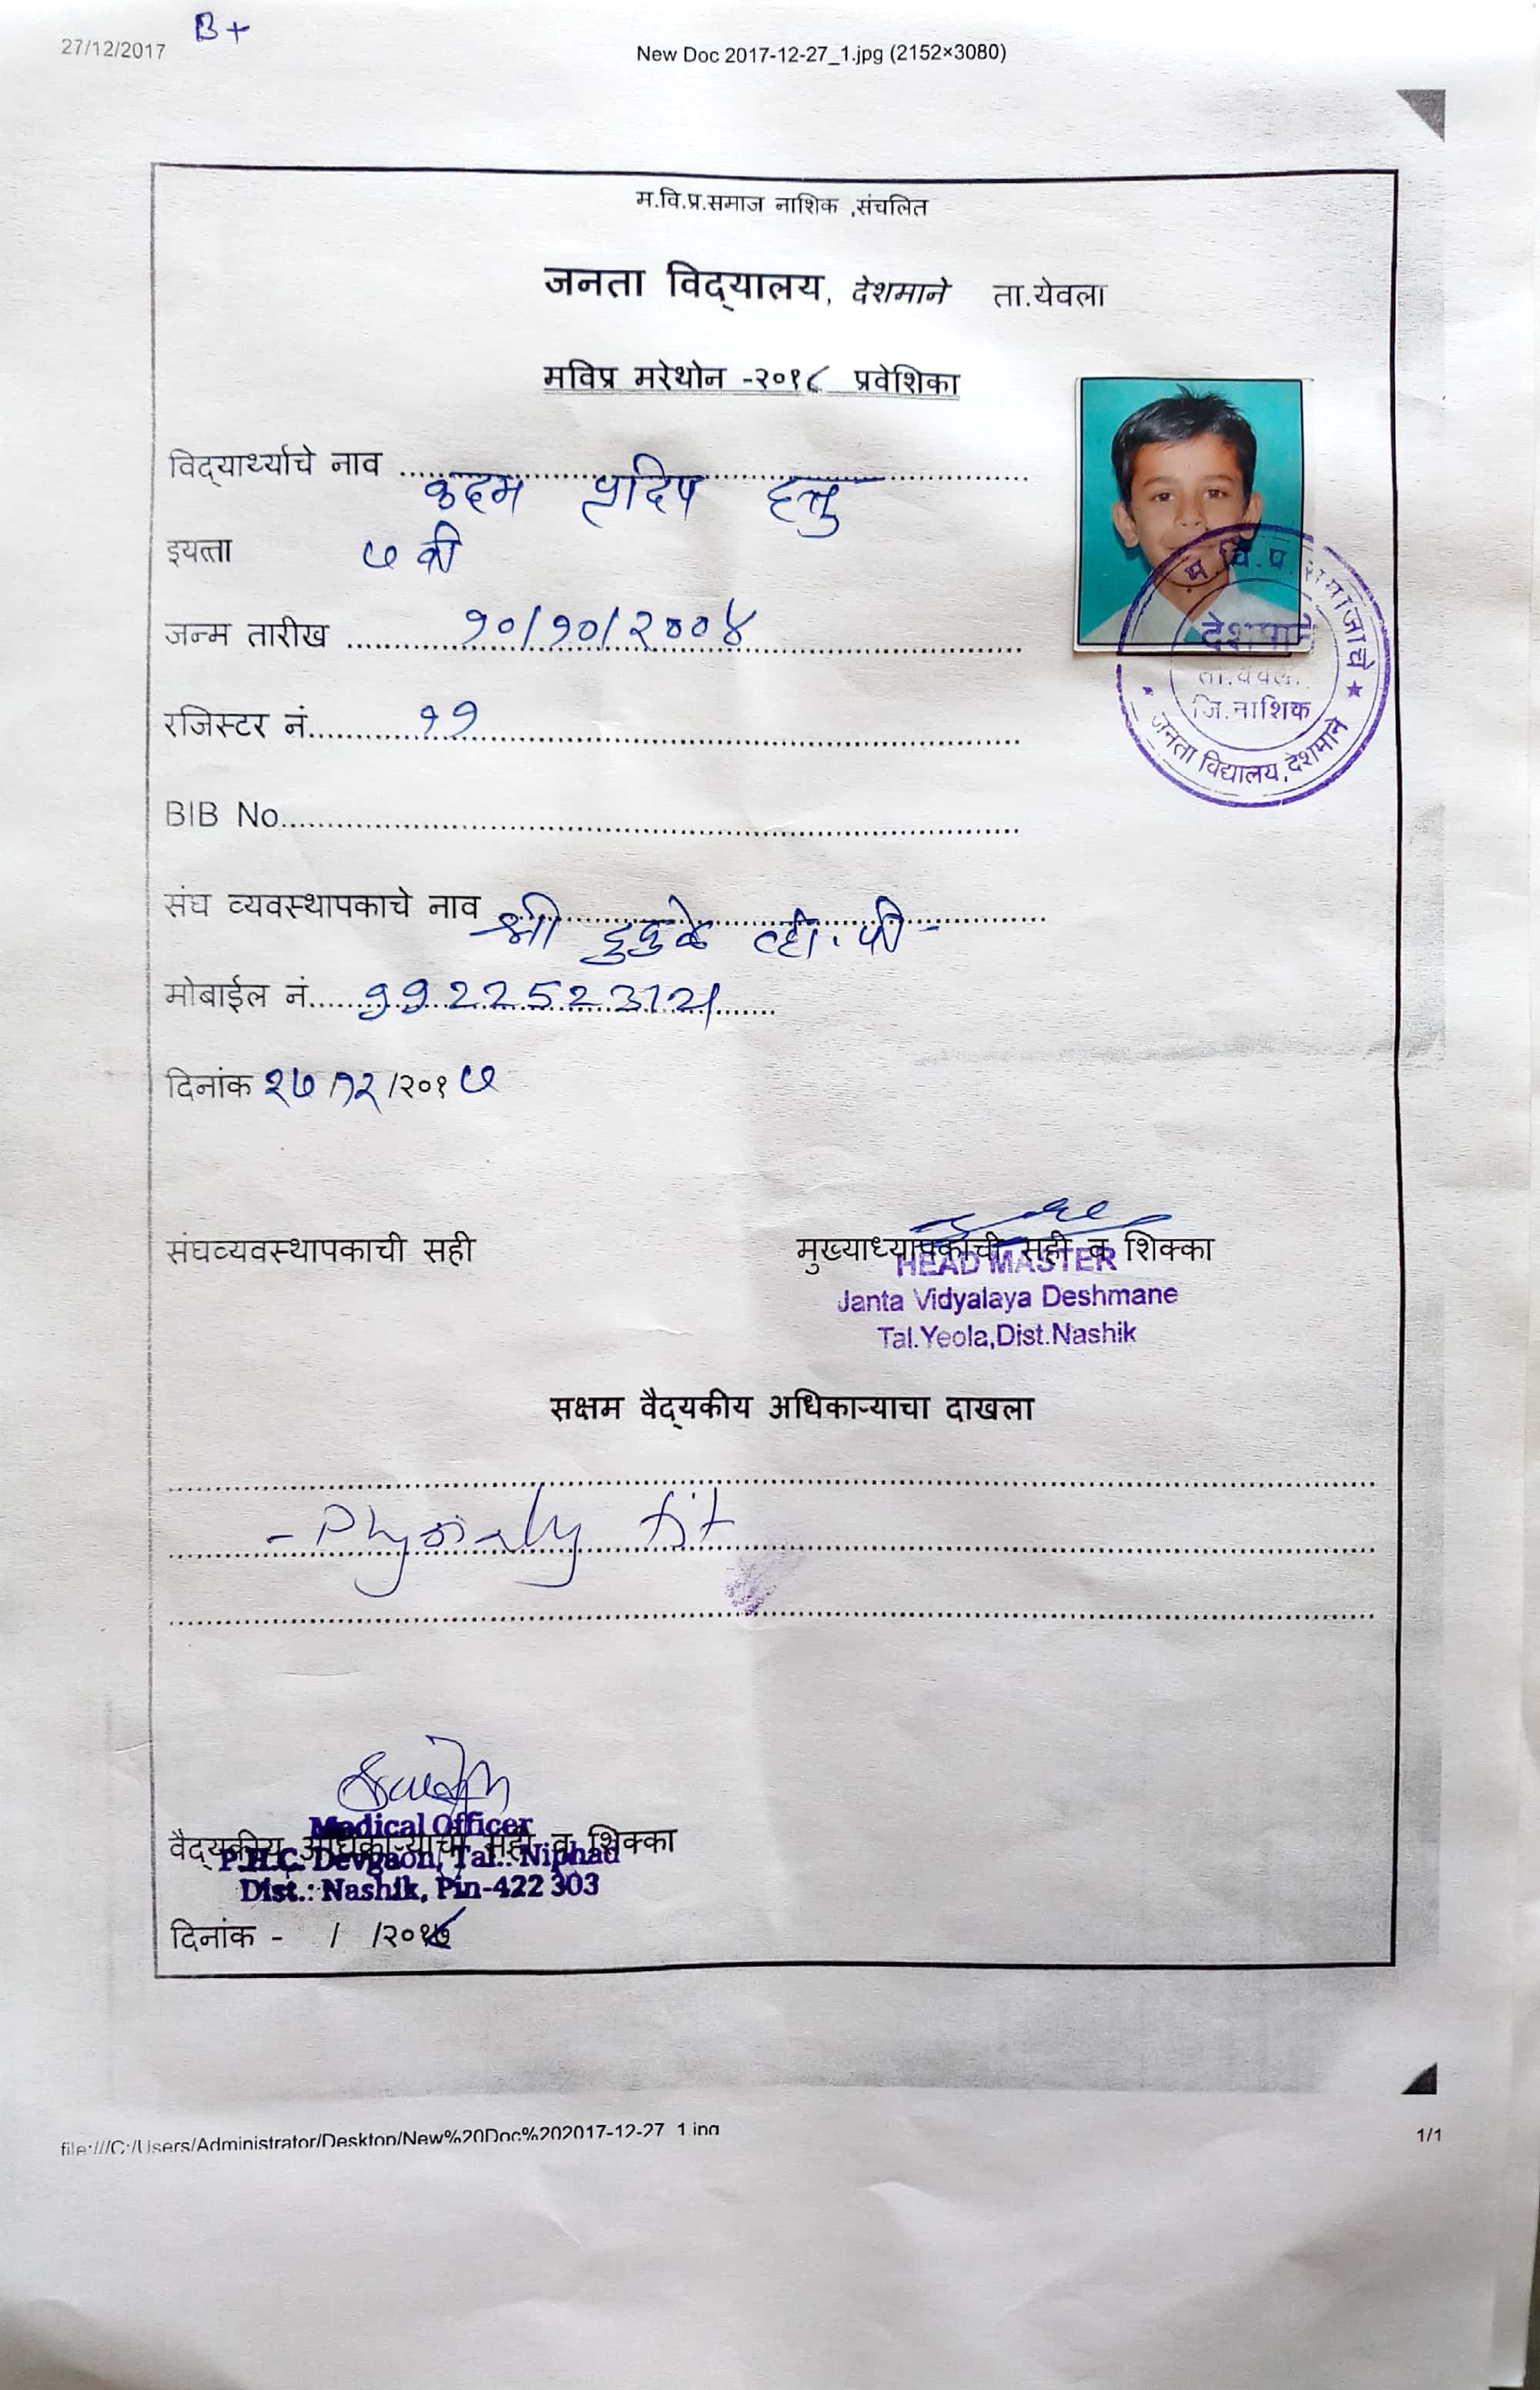 27/12/2017
B+
New Doc 2017-12-27_1.jpg (2152×3080)
म.वि.प्र.समाज नाशिक ,संचलित
जनता विद्यालय, देशमाने ता.येवला
मविप्र मरेथोन -२०१८ प्रवेशिका
विद्यार्थ्याचे नाव कदम प्रदिप दत्तु
इयत्ता ७ वी
जन्म तारीख १०/१०/२००४
रजिस्टर नं. ११
म.वि.प्र.समाजाचे
देशमाने
ता.येवला.
जि.नाशिक
जनता विद्यालय, देशमाने
BIB No.
संघ व्यवस्थापकाचे नाव श्री व्ही. पी
मोबाईल नं.
दिनांक २७/१२/२०१७
संघव्यवस्थापकाची सही
मुख्याध्यापकाची सही व शिक्का
HEAD MASTER
Janta Vidyalaya Deshmane
Tal.Yeola,Dist.Nashik
सक्षम वैद्यकीय अधिकाऱ्याचा दाखला
- fit
Medical Officer
वैद्यकीय अधिकाऱ्याची सही व शिक्का
P.H.C. Devgaon, Tal.: Niphad
Dist.: Nashik, Pin-422 303
दिनांक - / /२०१८
file:///C:/Users/Administrator/Desktop/New%20Doc%202017-12-27_1.jpg
1/1